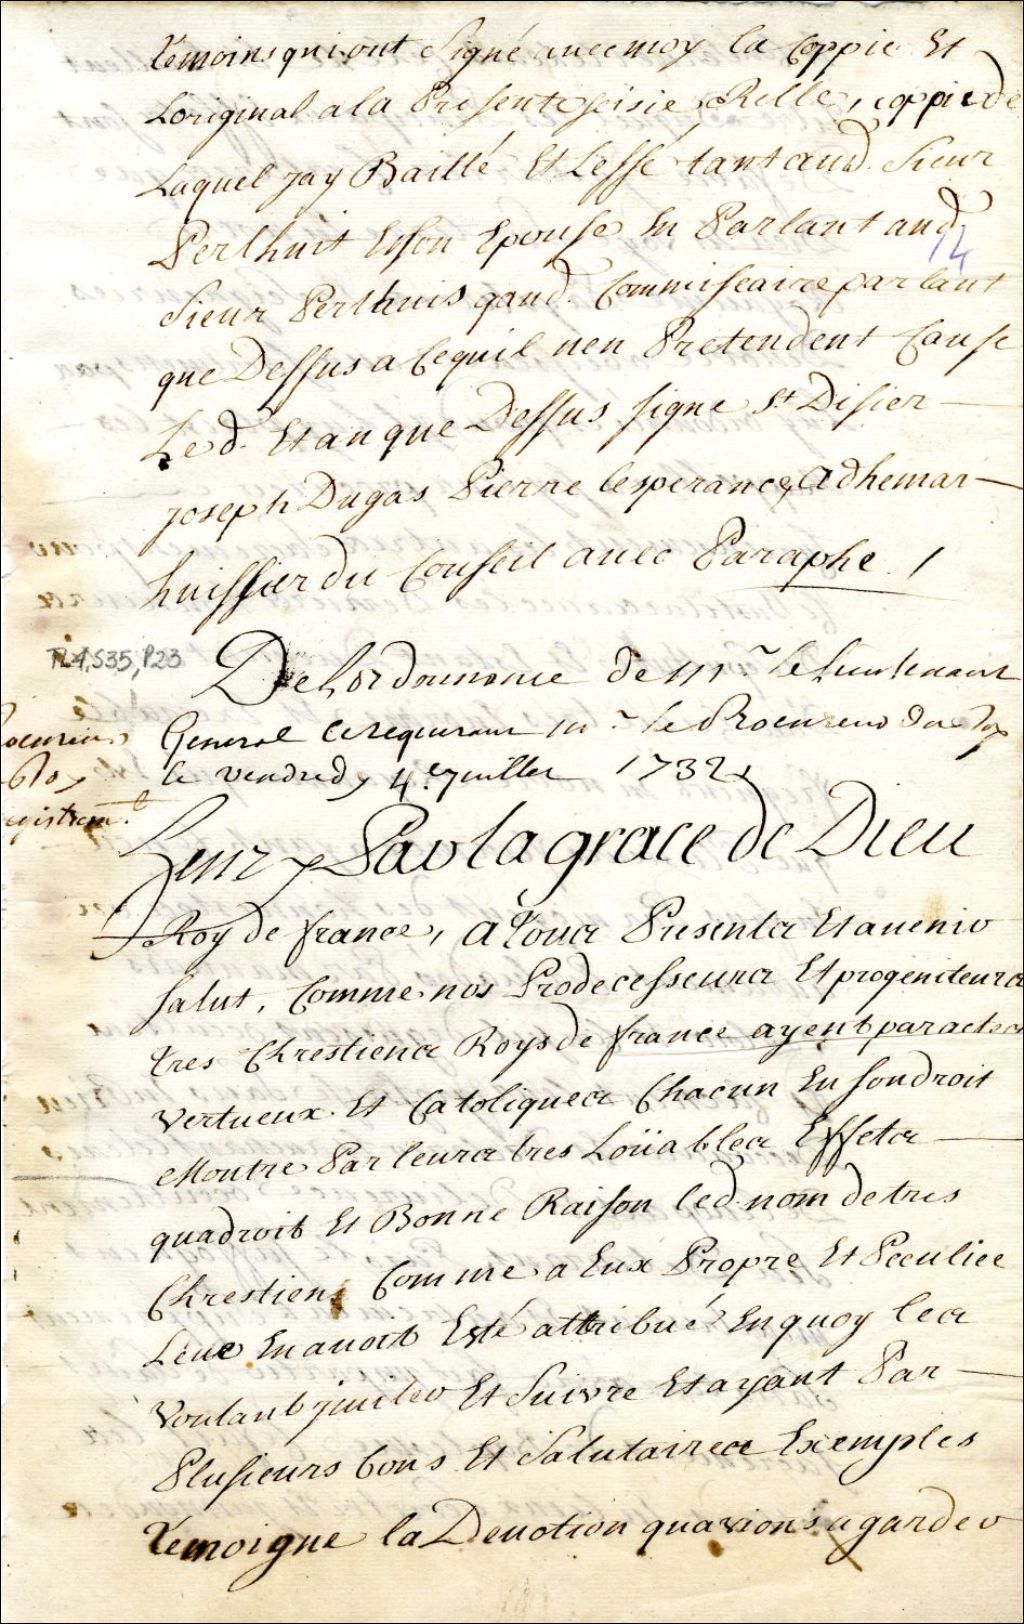 temoins qui ont Signé avec moy la Coppie Et
Loriginal a la Presente seisie Relle, coppie de
Laquel jay Baillé Et Lessé tant aud. Sieur
Perthuit Et son Epouse En Parlant aud.
14
Sieur Perthuis qaud. Commisseaire parlant
que Dessus a Cequil nen Pretendent Cause
Led. Et an que Dessus signe St Disier
joseph Dugas Pierre lesperance, Adhemar
huissier du Conseil avec Paraphe /
TL4,S35,P23
De Lordonnance de Mr. le Lieutenant
General Ce requerant Mr. le Procureur du Roy
le vendredy 4e. juillet 1732
ocureur
Roy
egistrem.t
Henry Par la grace de Dieu
Roy de france, a Tous Presents Et avenir
Salut, Comme nos Prodecesseurs Et progeniteurs
tres Chrestiens Roys de france ayent par actes
vertueux Et Catoliques Chacun En son droit
Montre Par leurs tres Loüables Effets
qua droit Et Bonne Raison led. nom de tres
Chrestiens Comme a Eux Propre Et Peculier
Leur En avoit Esté attribué En quoy les
Voulant jmiter Et Suivre Et ayant Par
Plusieurs bons Et Salutaires Exemples
Temoigne la Devotion quavions a garder